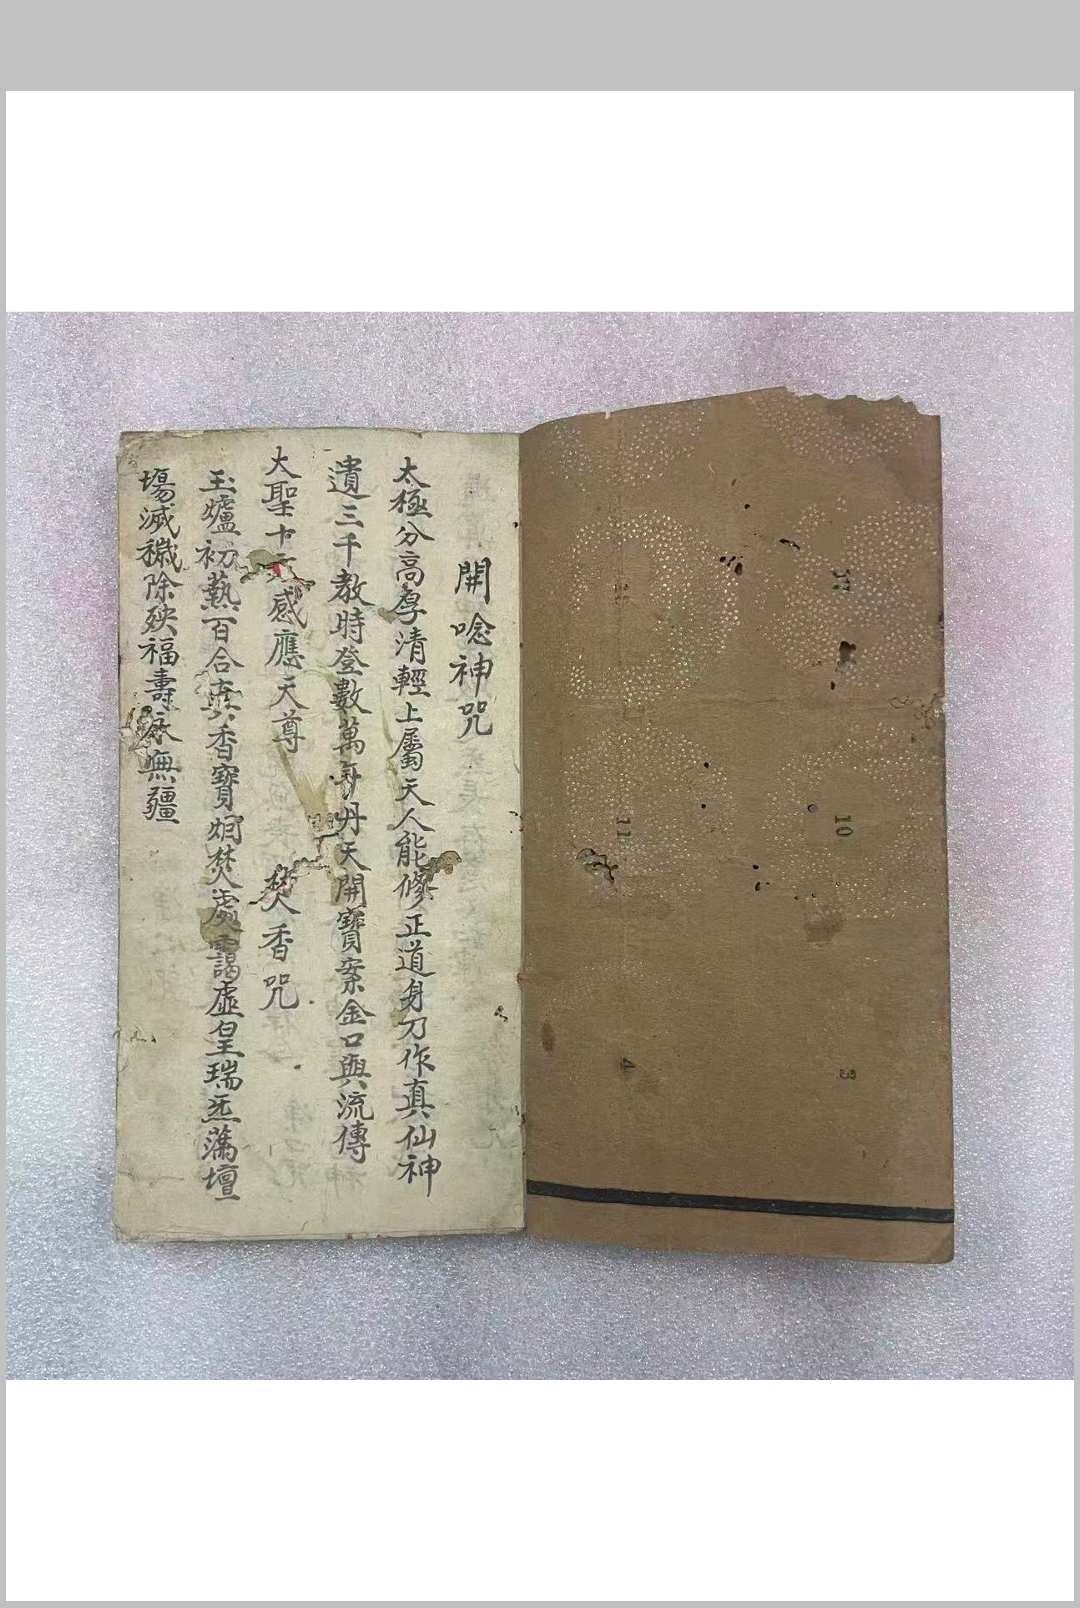 開唸神咒
太極分高厚清輕上屬天人能修正道身乃作真仙神
遺三千教時登數萬年丹天開寶案金口與流傳
大聖十方感應天尊 焚香咒
玉爐初爇百合真香寶烟焚處靄虛皇瑞炁藹壇
塲滅穢除殃福壽永無疆
11
10
4
3